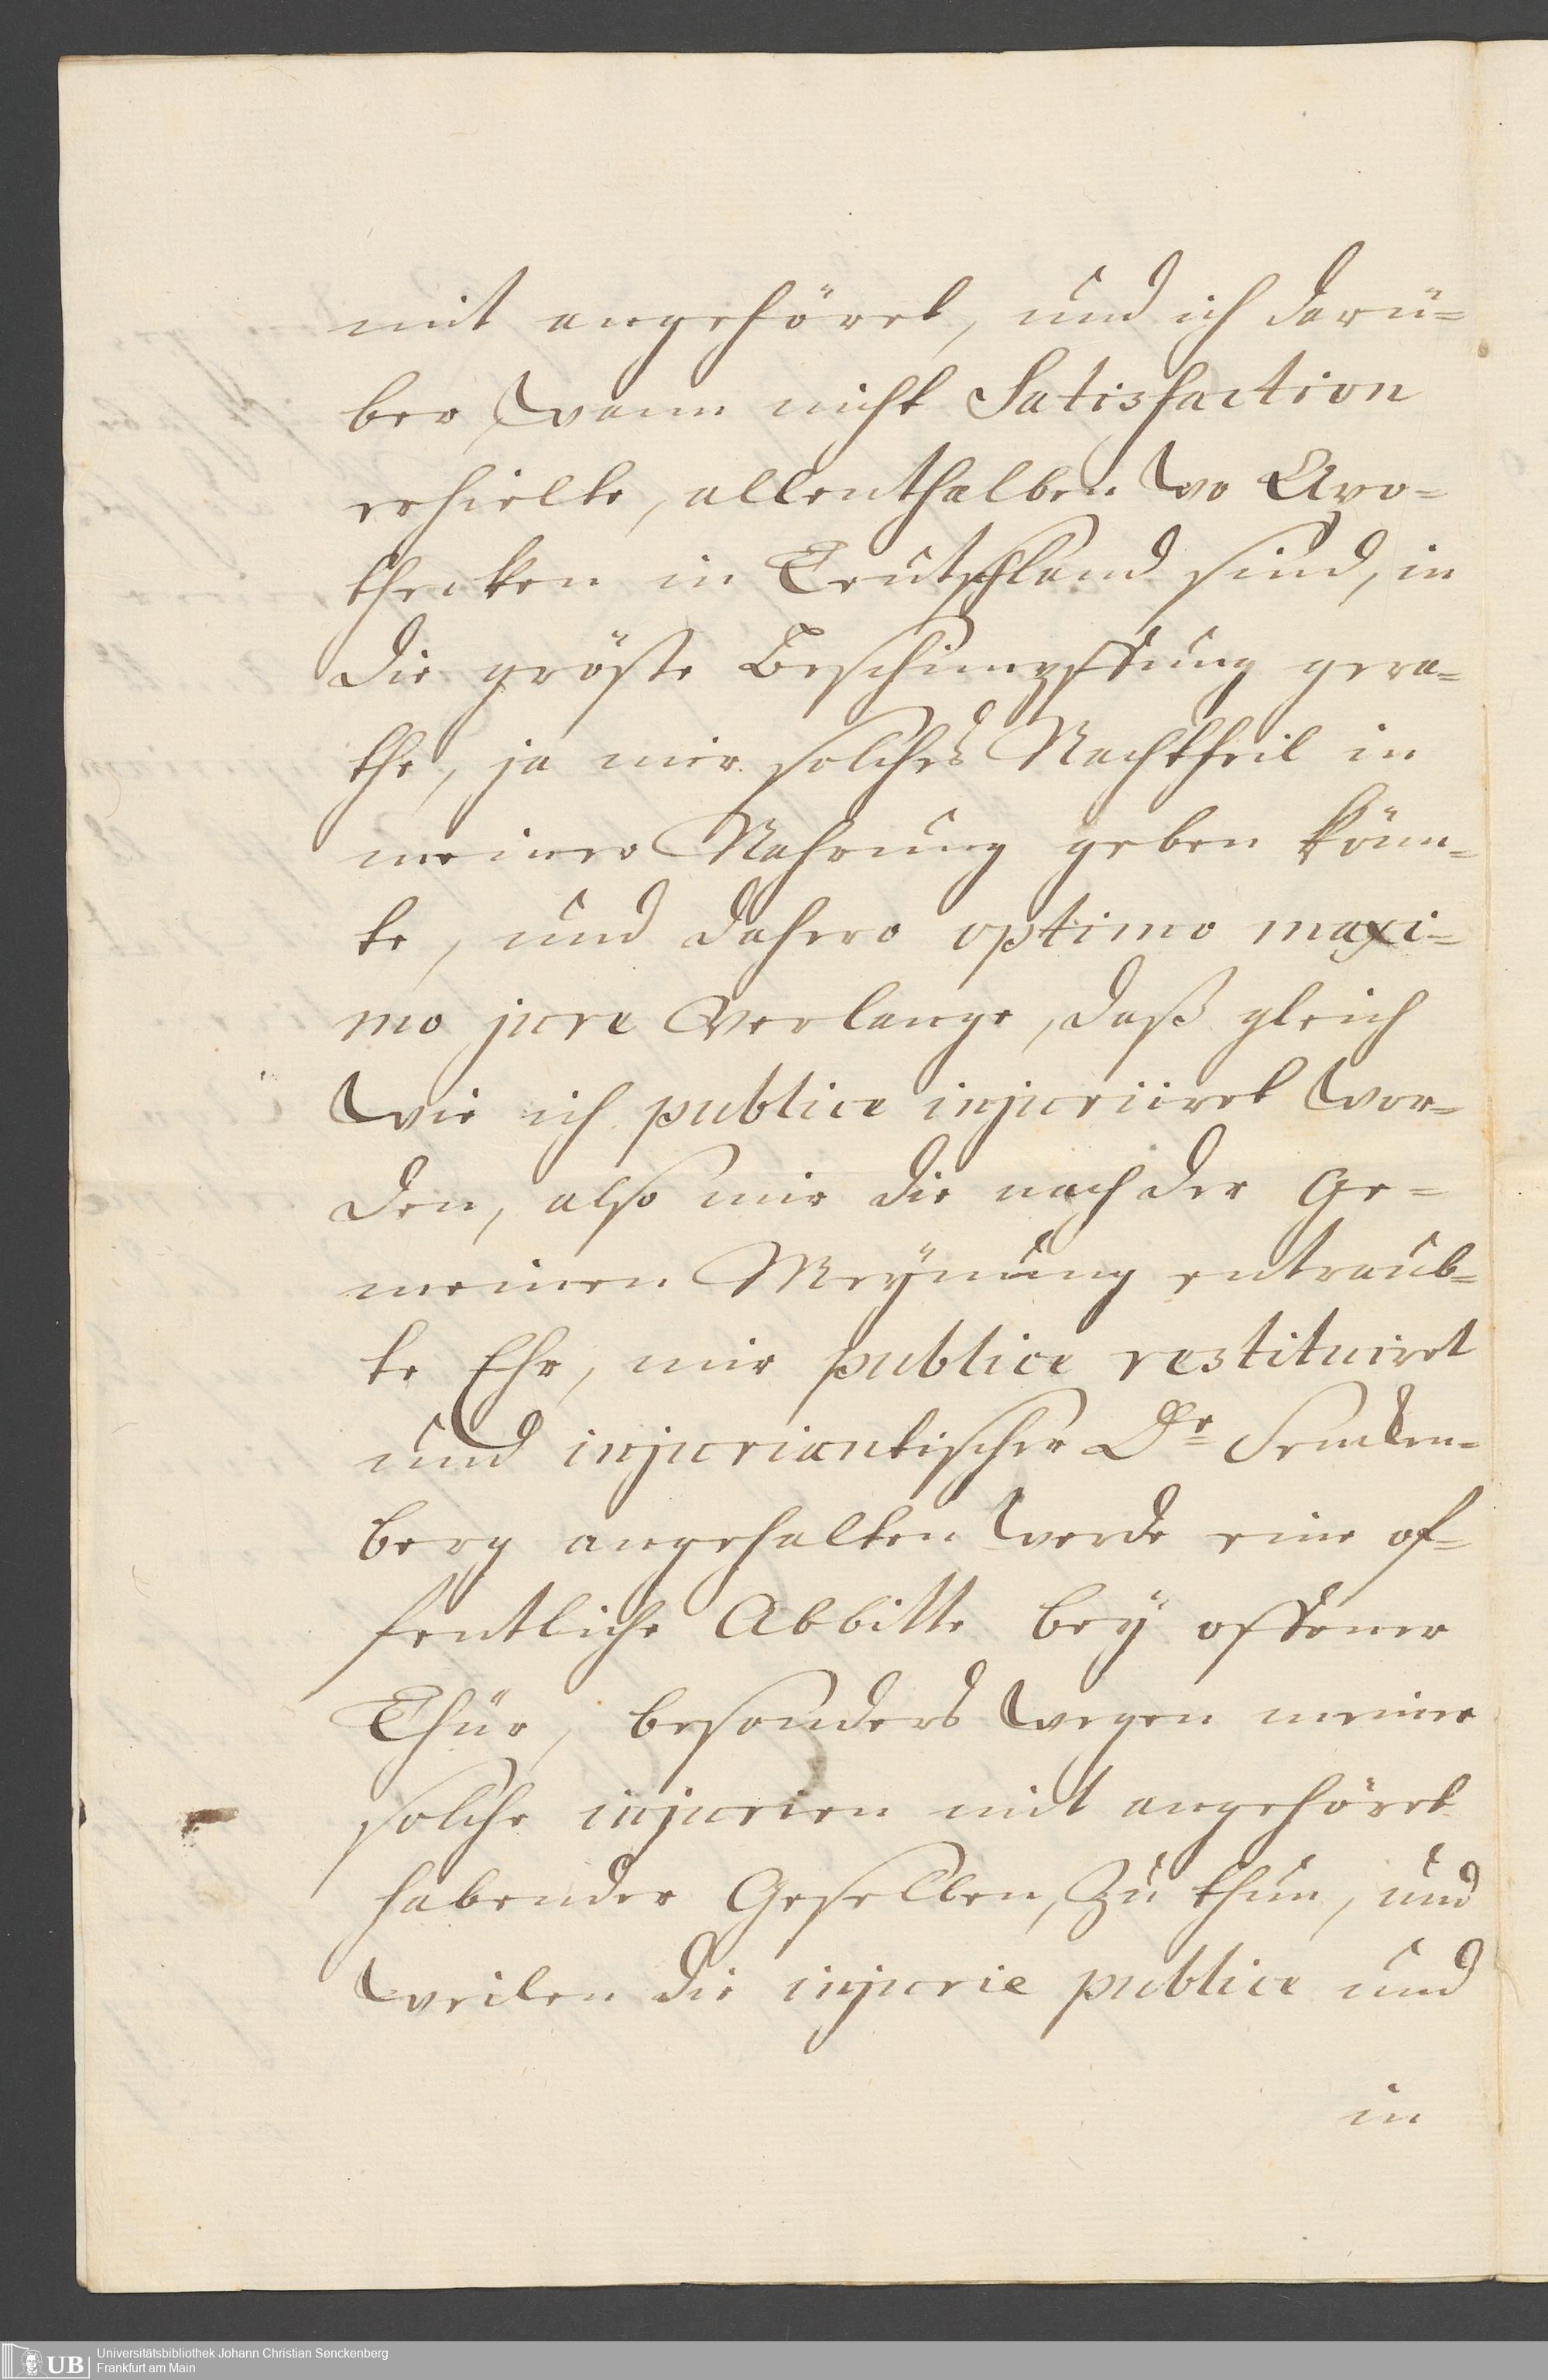 mit angehöret, und ich darü=
ber, wann nicht Satisfaction
erhielte, allenthalben wo Apo=
thecken in Teutschland sind, in
die gröste Beschimpffung gera=
the, ja mir solches Nachtheil in
meiner Nahrung geben könn=
te, und dahero optimo maxi=
mo jure verlange, daß gleich
wie ich publice injuriiret wor=
den, also mir die nach der Ge=
meinen Meÿnung entraub=
te Ehr, mir publice restituiret
und injuriantischer Dr Sencken=
berg angehalten werde eine of=
fentliche Abbitte beÿ offener
Thür, besonders wegen meiner
solche injurien mit angehöret
habender Gesellen, zu thun, und
weilen die injurie publice und
in
UB
Universitätsbibliothek Johann Christian Senckenberg
Frankfurt am Main